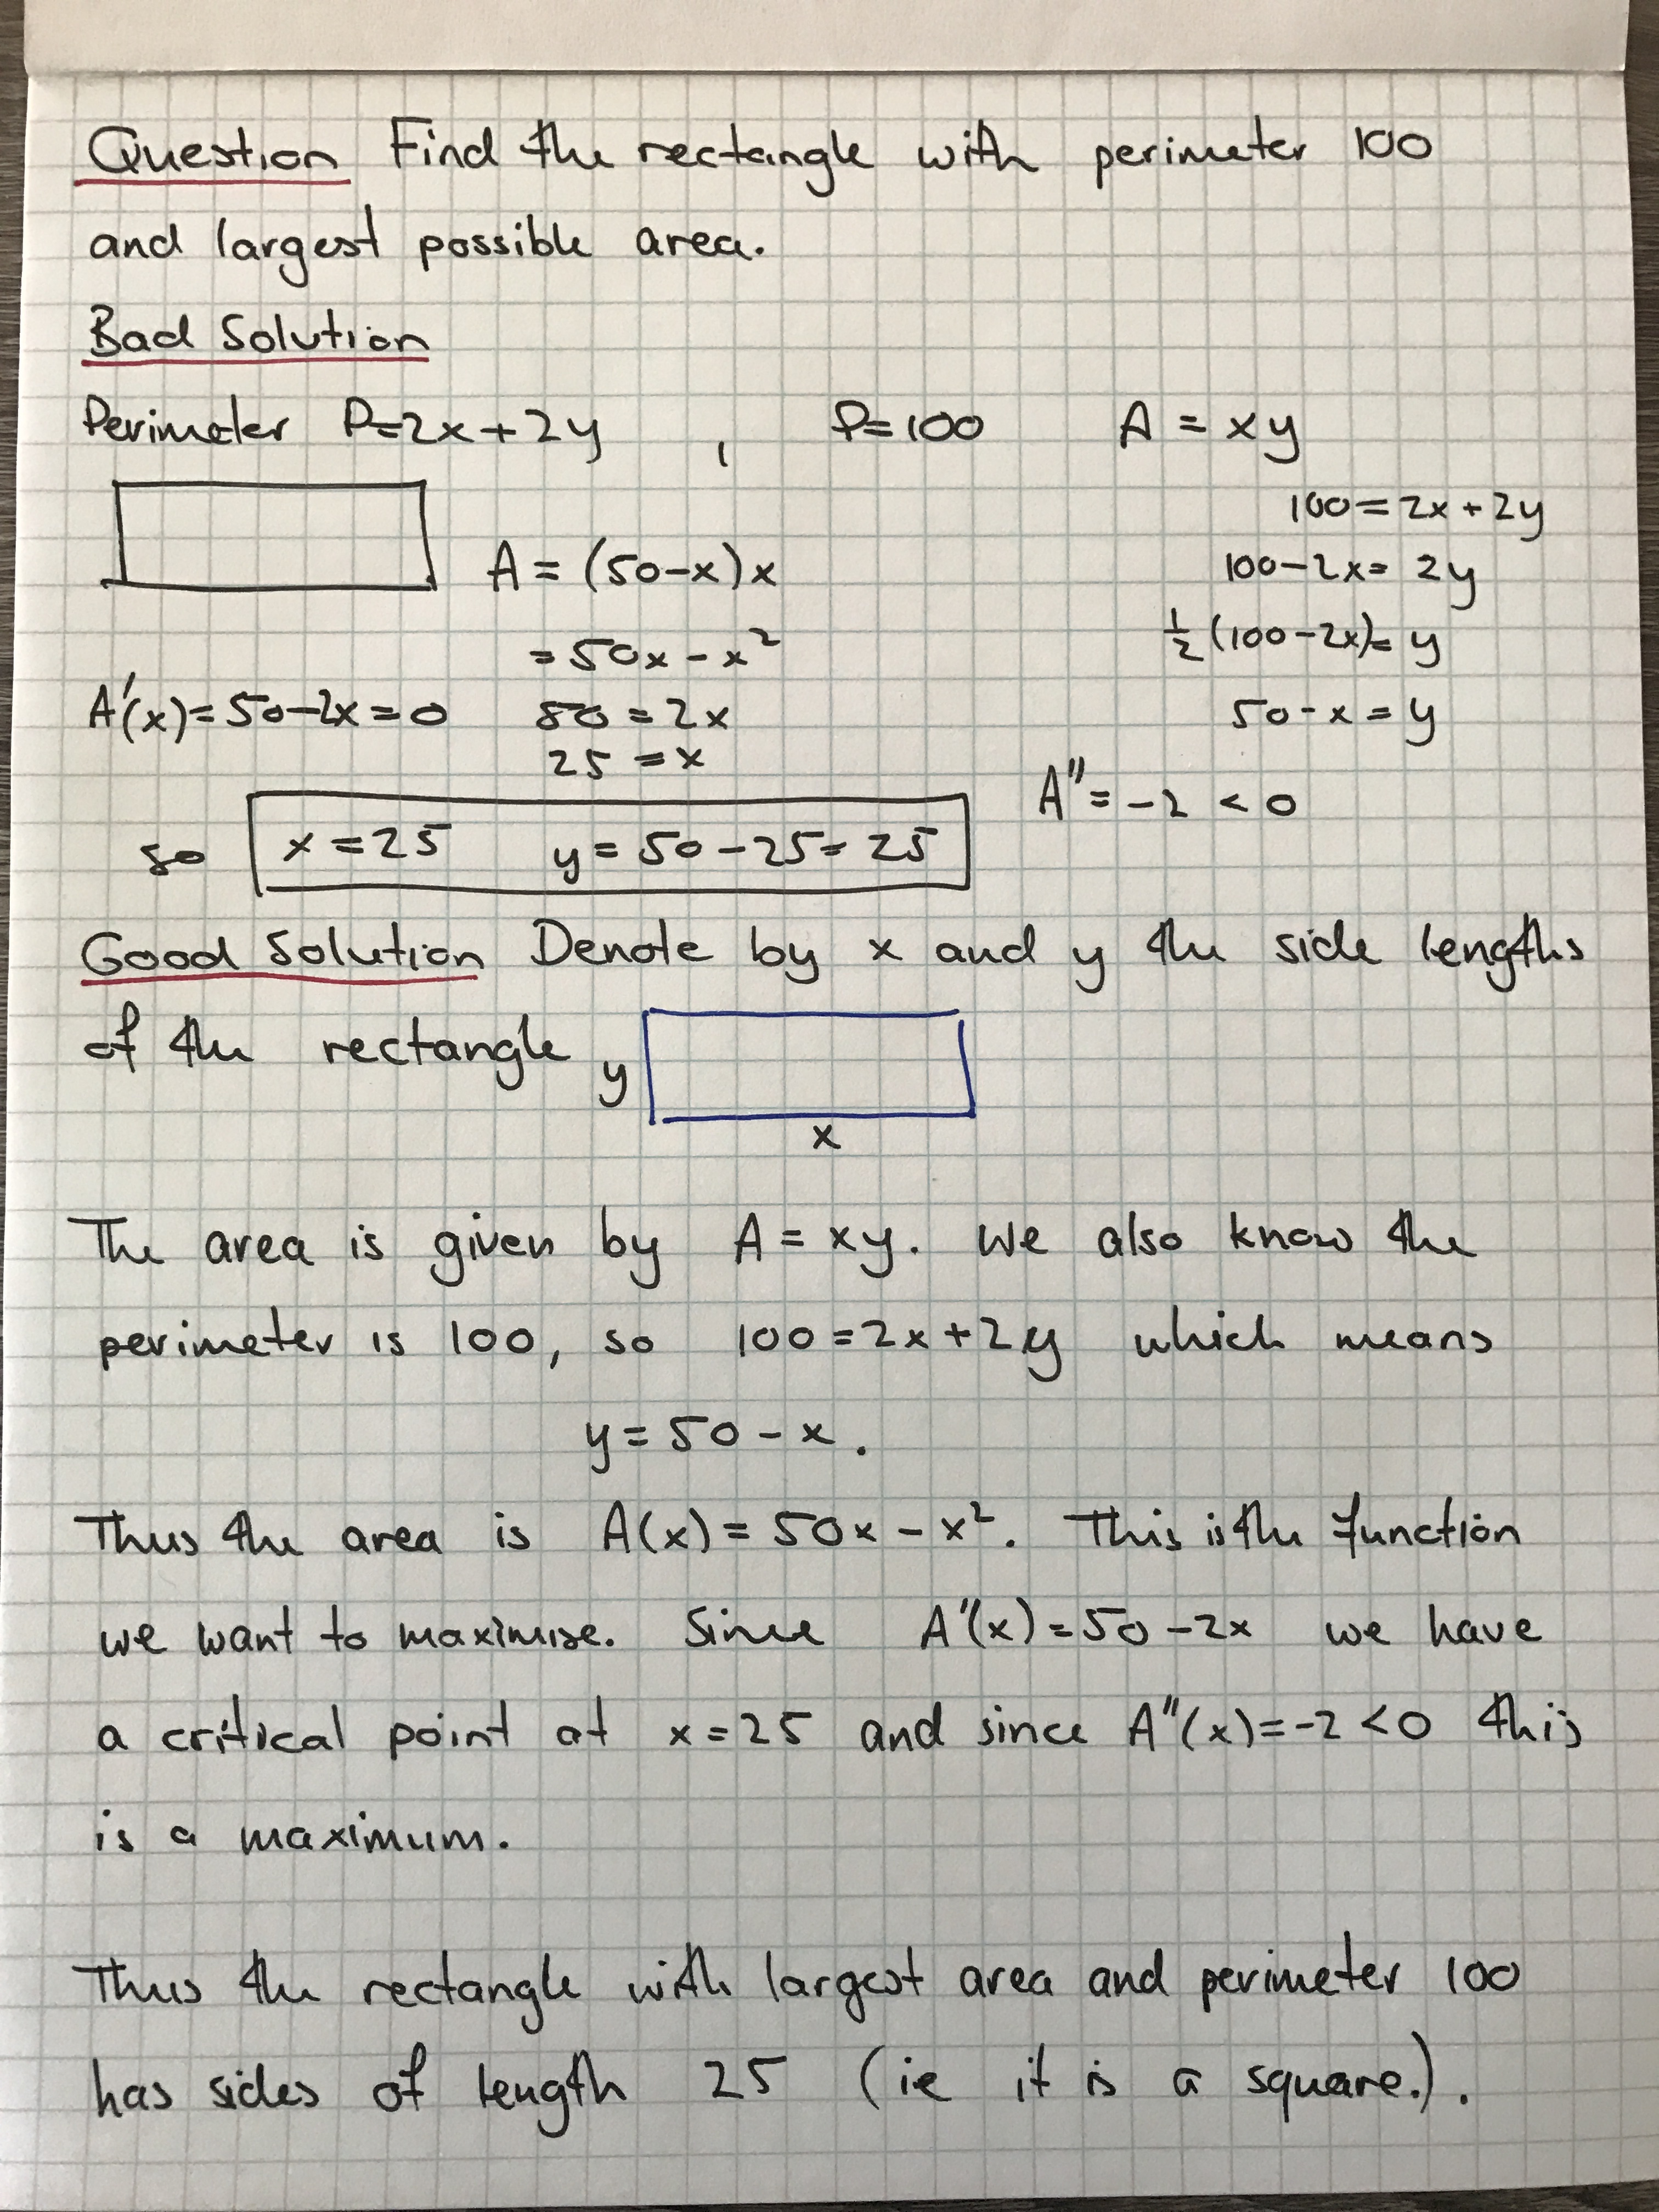 Question Find the rectangle with perimeter 100
and largest possible area.
Bad Solution
Perimeter P=2x+2y , P=100 A = xy
100=2x+2y
A = (50-x)x
100-2x= 2y
= 50x - x²
½(100-2x)= y
A'(x)=50-2x=0
50 = 2x
50-x=y
25 = x
A''=-2 < 0
so x=25 y=50-25=25
Good Solution Denote by x and y the side lengths
of the rectangle y
x
The area is given by A = xy. We also know the
perimeter is 100, so 100=2x+2y which means
y=50-x.
Thus the area is A(x)=50x-x². This is the function
we want to maximise. Since A'(x)=50-2x we have
a critical point at x=25 and since A''(x)=-2<0 this
is a maximum.
Thus the rectangle with largest area and perimeter 100
has sides of length 25 (ie it is a square.).